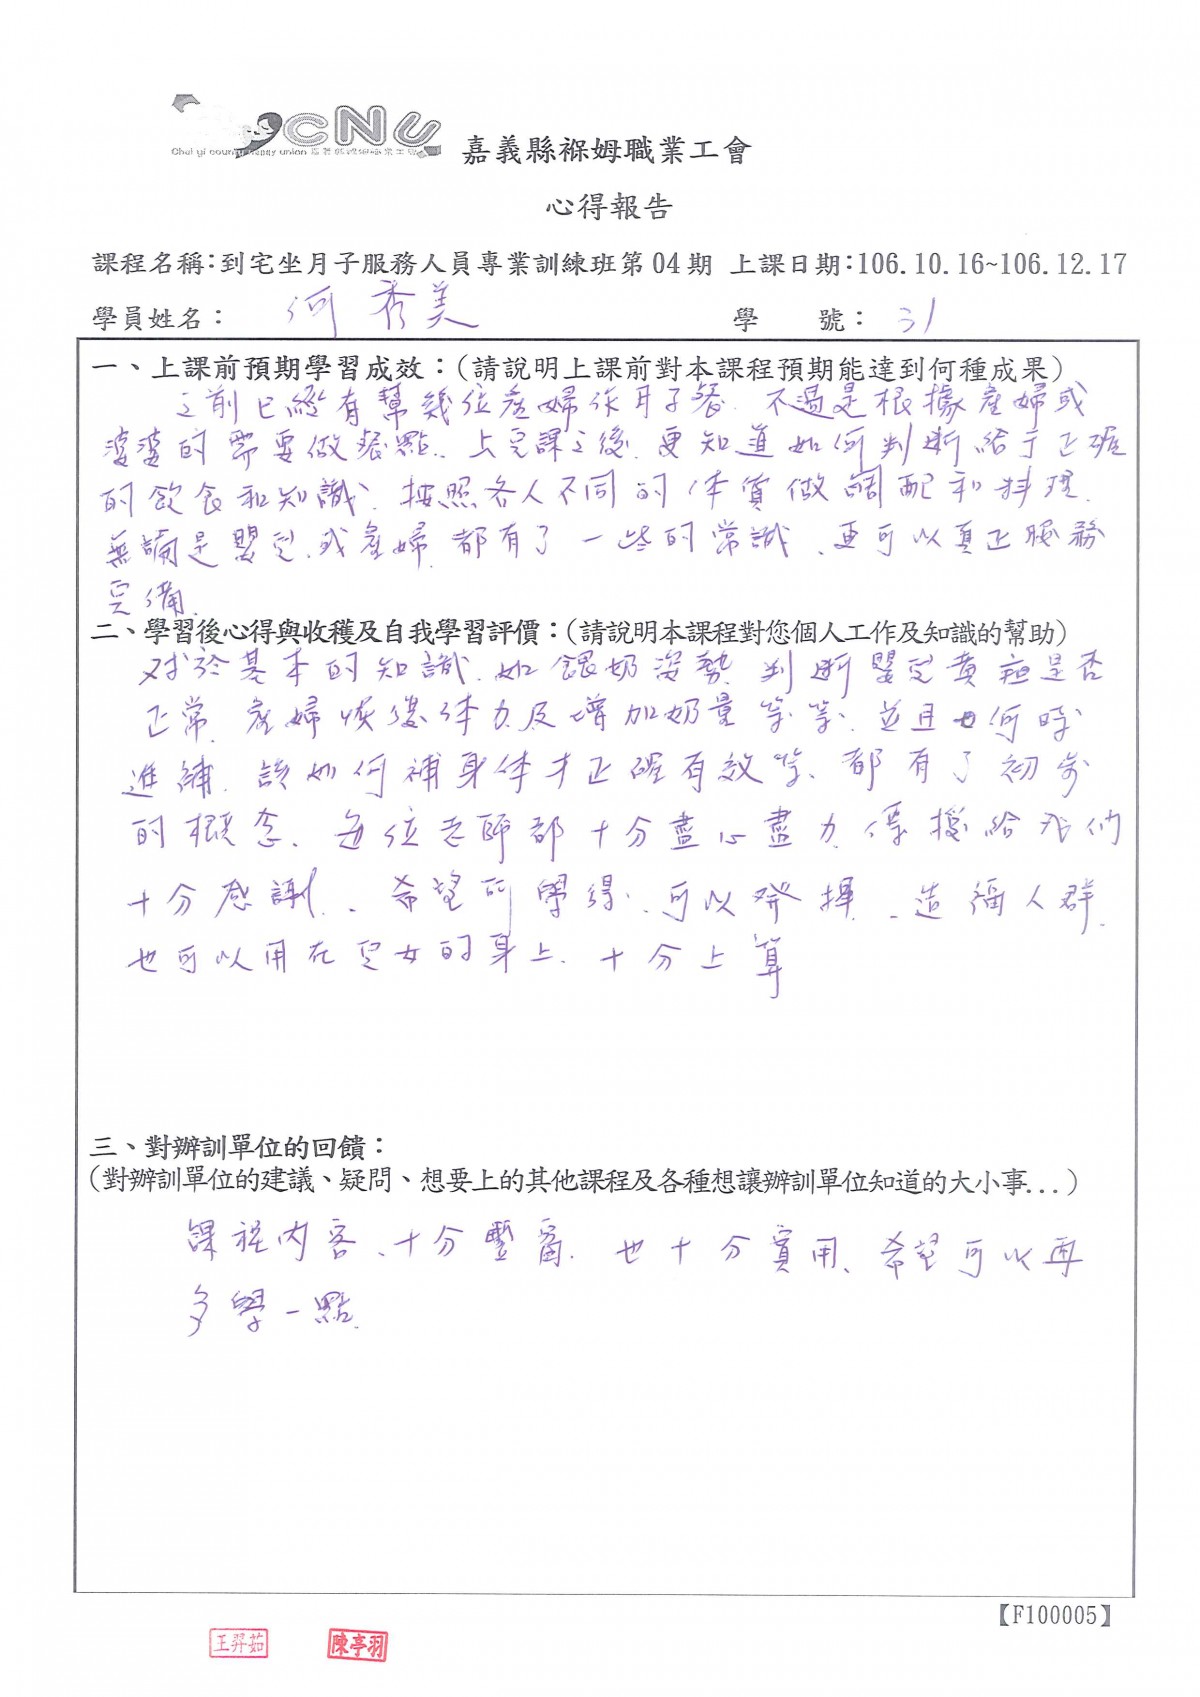 CNU
嘉義縣褓姆職業工會
心得報告
課程名稱：到宅坐月子服務人員專業訓練班第04期 上課日期：106.10.16~106.12.17
學員姓名： 何秀美 學 號： 31
一、上課前預期學習成效：（請說明上課前對本課程預期能達到何種成果）
之前已經有幫幾位產婦作月子餐．不過是根據產婦或
婆婆的需要做餐點．上完課之後．更知道如何判斷給予正確
的飲食和知識、按照各人不同的体質做調配和料理．
無論是嬰兒、或產婦．都有了一些的常識、更可以真正服務
完備．
二、學習後心得與收穫及自我學習評價：（請說明本課程對您個人工作及知識的幫助）
对於基本的知識．如餵奶姿勢．判斷嬰兒黃疸是否
正常．產婦恢復体力及增加奶量等等、並且如何時
進補．該如何補身体才正確有效等、都有了初步
的概念、每位老師都十分盡心盡力傳授給我們
十分感謝．、希望所學得、可以發揮、造福人群．
也可以用在兒女的身上．十分上算
三、對辦訓單位的回饋：
（對辦訓單位的建議、疑問、想要上的其他課程及各種想讓辦訓單位知道的大小事...）
課程內容、十分豐富．也十分實用、希望可以再
多學一點．
【F100005】
王羿茹 陳亭羽